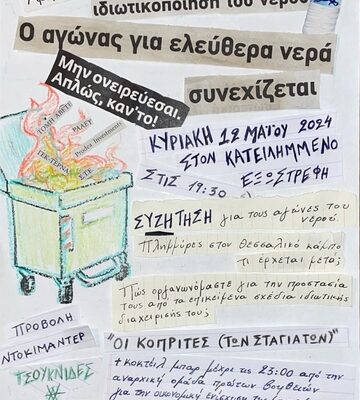 ιδιωτικοποίηση του νερού
Ο αγώνας για ελεύθερα νερά
συνεχίζεται
Μην ονειρεύεσαι.
Απλώς, καν'το!
ΤΟΜΗ ΑΒΕΤΕ
ΡΑΑΕΥ
Premier Investments
ΓΕΚ ΤΕΡΝΑ
ΕΤΕ
ΚΥΡΙΑΚΗ 12 ΜΑΪΟΥ 2024
ΣΤΟΝ ΚΑΤΕΙΛΗΜΜΕΝΟ
ΣΤΙΣ 17:30
ΕΞΩΣΤΡΕΦΗ
ΣΥΖΗΤΗΣΗ για τους αγώνες του
νερού
Πλημμύρες στον Θεσσαλικό κάμπο
τι έρχεται μετά;
Πώς οργανωνόμαστε για την προστασία
του από τα επικείμενα σχέδια ιδιωτικής
διαχείρισής του;
ΠΡΟΒΟΛΗ
ΝΤΟΚΙΜΑΝΤΕΡ
ΤΣΟΥΚΝΙΔΕΣ
"ΟΙ ΚΟΠΡΙΤΕΣ (ΤΩΝ ΣΤΑΓΙΑΤΩΝ)"
+ κοκτέιλ μπαρ μέχρι τις 23:00 από την
αναρχική ομάδα πρώτων βοηθειών
για την οικονομική ενίσχυση της